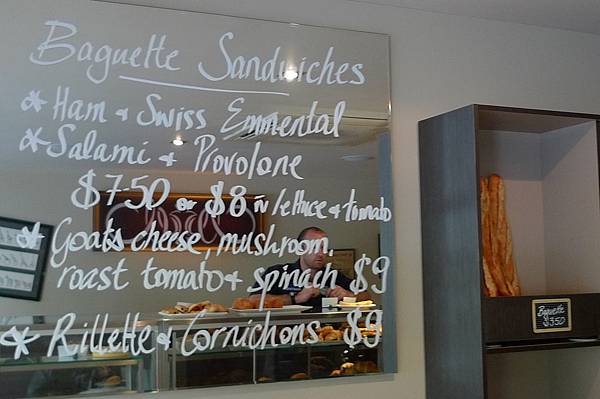 Baguette Sandwiches
* Ham & Swiss Emmental
* Salami & Provolone
$7.50 or $8 w/ lettuce & tomato
* Goats cheese, mushroom,
roast tomato & spinach $9
* Rillette & Cornichons $9
Baguette
$3.50